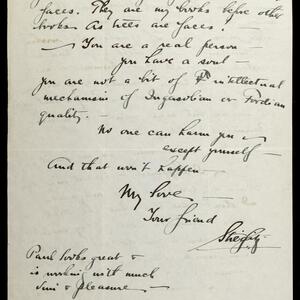 faces. They are my books before other
books. As trees are faces.
— You are a real person —
you have a soul —
you are not a bit of intellectual
mechanism of Ingersollian or Fordian
quality. —
No one can harm you —
except yourself —
And that won't happen —
My love
Your friend
Stieglitz
Paul looks great &
is working with much
vim & pleasure —